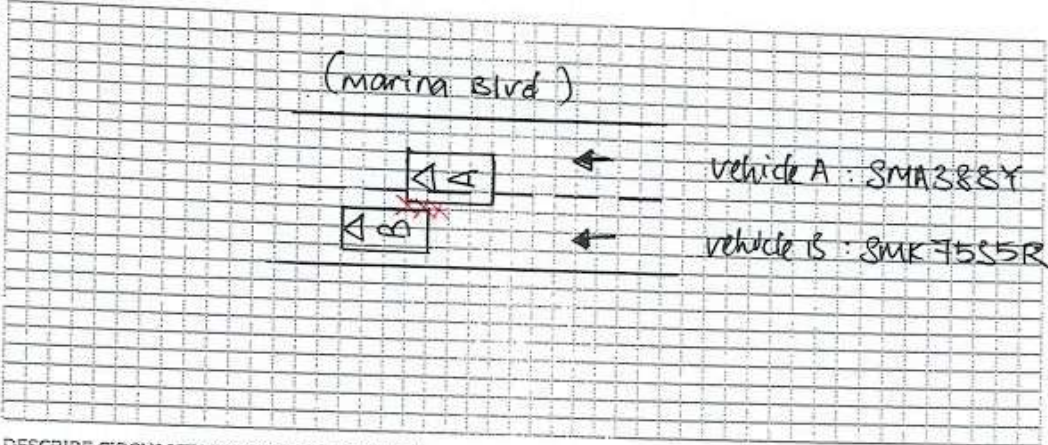 (marina Blvd)
A
vehicle A : SMA388Y
B
vehicle B : SMK7585R